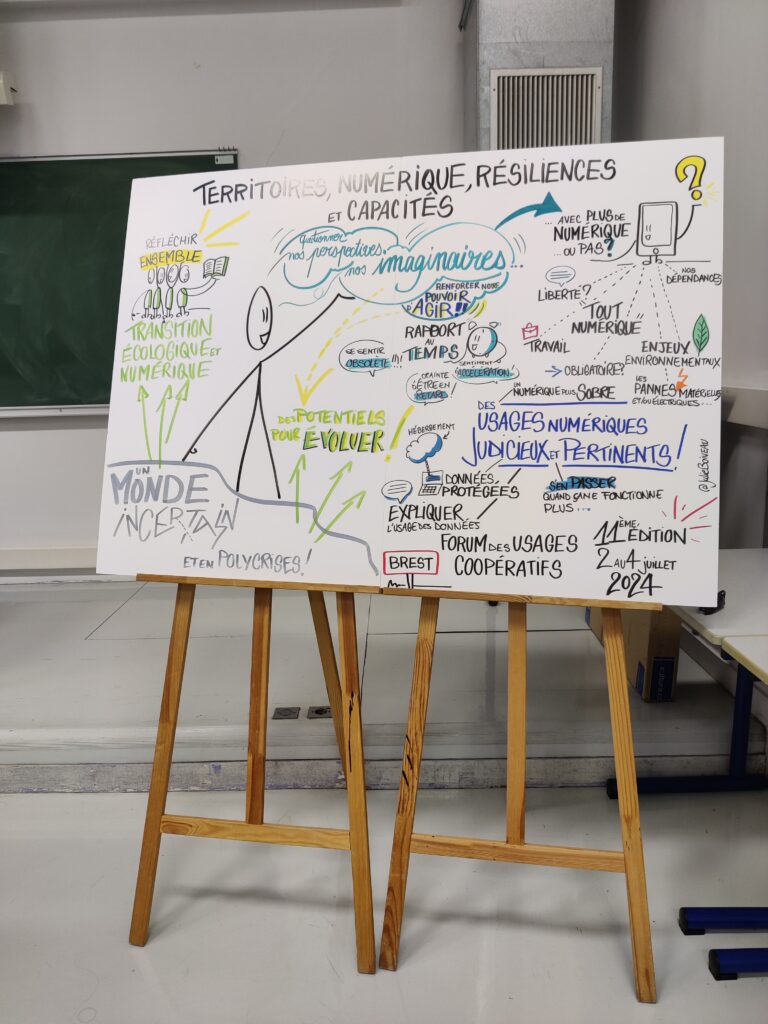 TERRITOIRES, NUMÉRIQUE, RÉSILIENCES
ET CAPACITÉS
RÉFLÉCHIR
ENSEMBLE
TRANSITION
ÉCOLOGIQUE ET
NUMÉRIQUE
UN
MONDE
INCERTAIN
ET EN POLYCRISES!
questionner
nos perspectives,
nos imaginaires...
RENFORCER NOTRE
POUVOIR
D'AGIR!!
SE SENTIR
OBSOLÈTE!!!
RAPPORT
AU
TEMPS
SENTIMENT
ACCÉLÉRATION
CRAINTE
D'ÊTRE EN
RETARD
DES POTENTIELS
POUR ÉVOLUER!
... AVEC PLUS DE
NUMÉRIQUE
... OU PAS?
?
NOS
DÉPENDANCES
LIBERTÉ?
TOUT
NUMÉRIQUE
TRAVAIL
ENJEUX
ENVIRONNEMENTAUX
OBLIGATOIRE?
UN
NUMÉRIQUE PLUS SOBRE
LES
PANNES MATÉRIELLES
ET/OU ÉLECTRIQUES...
DES
USAGES NUMÉRIQUES
JUDICIEUX ET PERTINENTS!
HÉBERGEMENT
DONNÉES
PROTÉGÉES
EXPLIQUER
L'USAGE DES DONNÉES
S'EN PASSER
QUAND ÇA NE FONCTIONNE
PLUS...
BREST
FORUM DES USAGES
COOPÉRATIFS
11ÈME ÉDITION
2 AU 4 JUILLET
2024